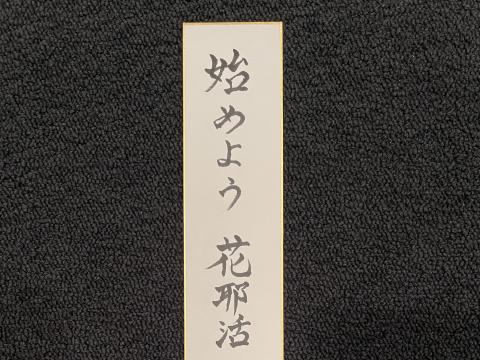 始めよう 花耶活